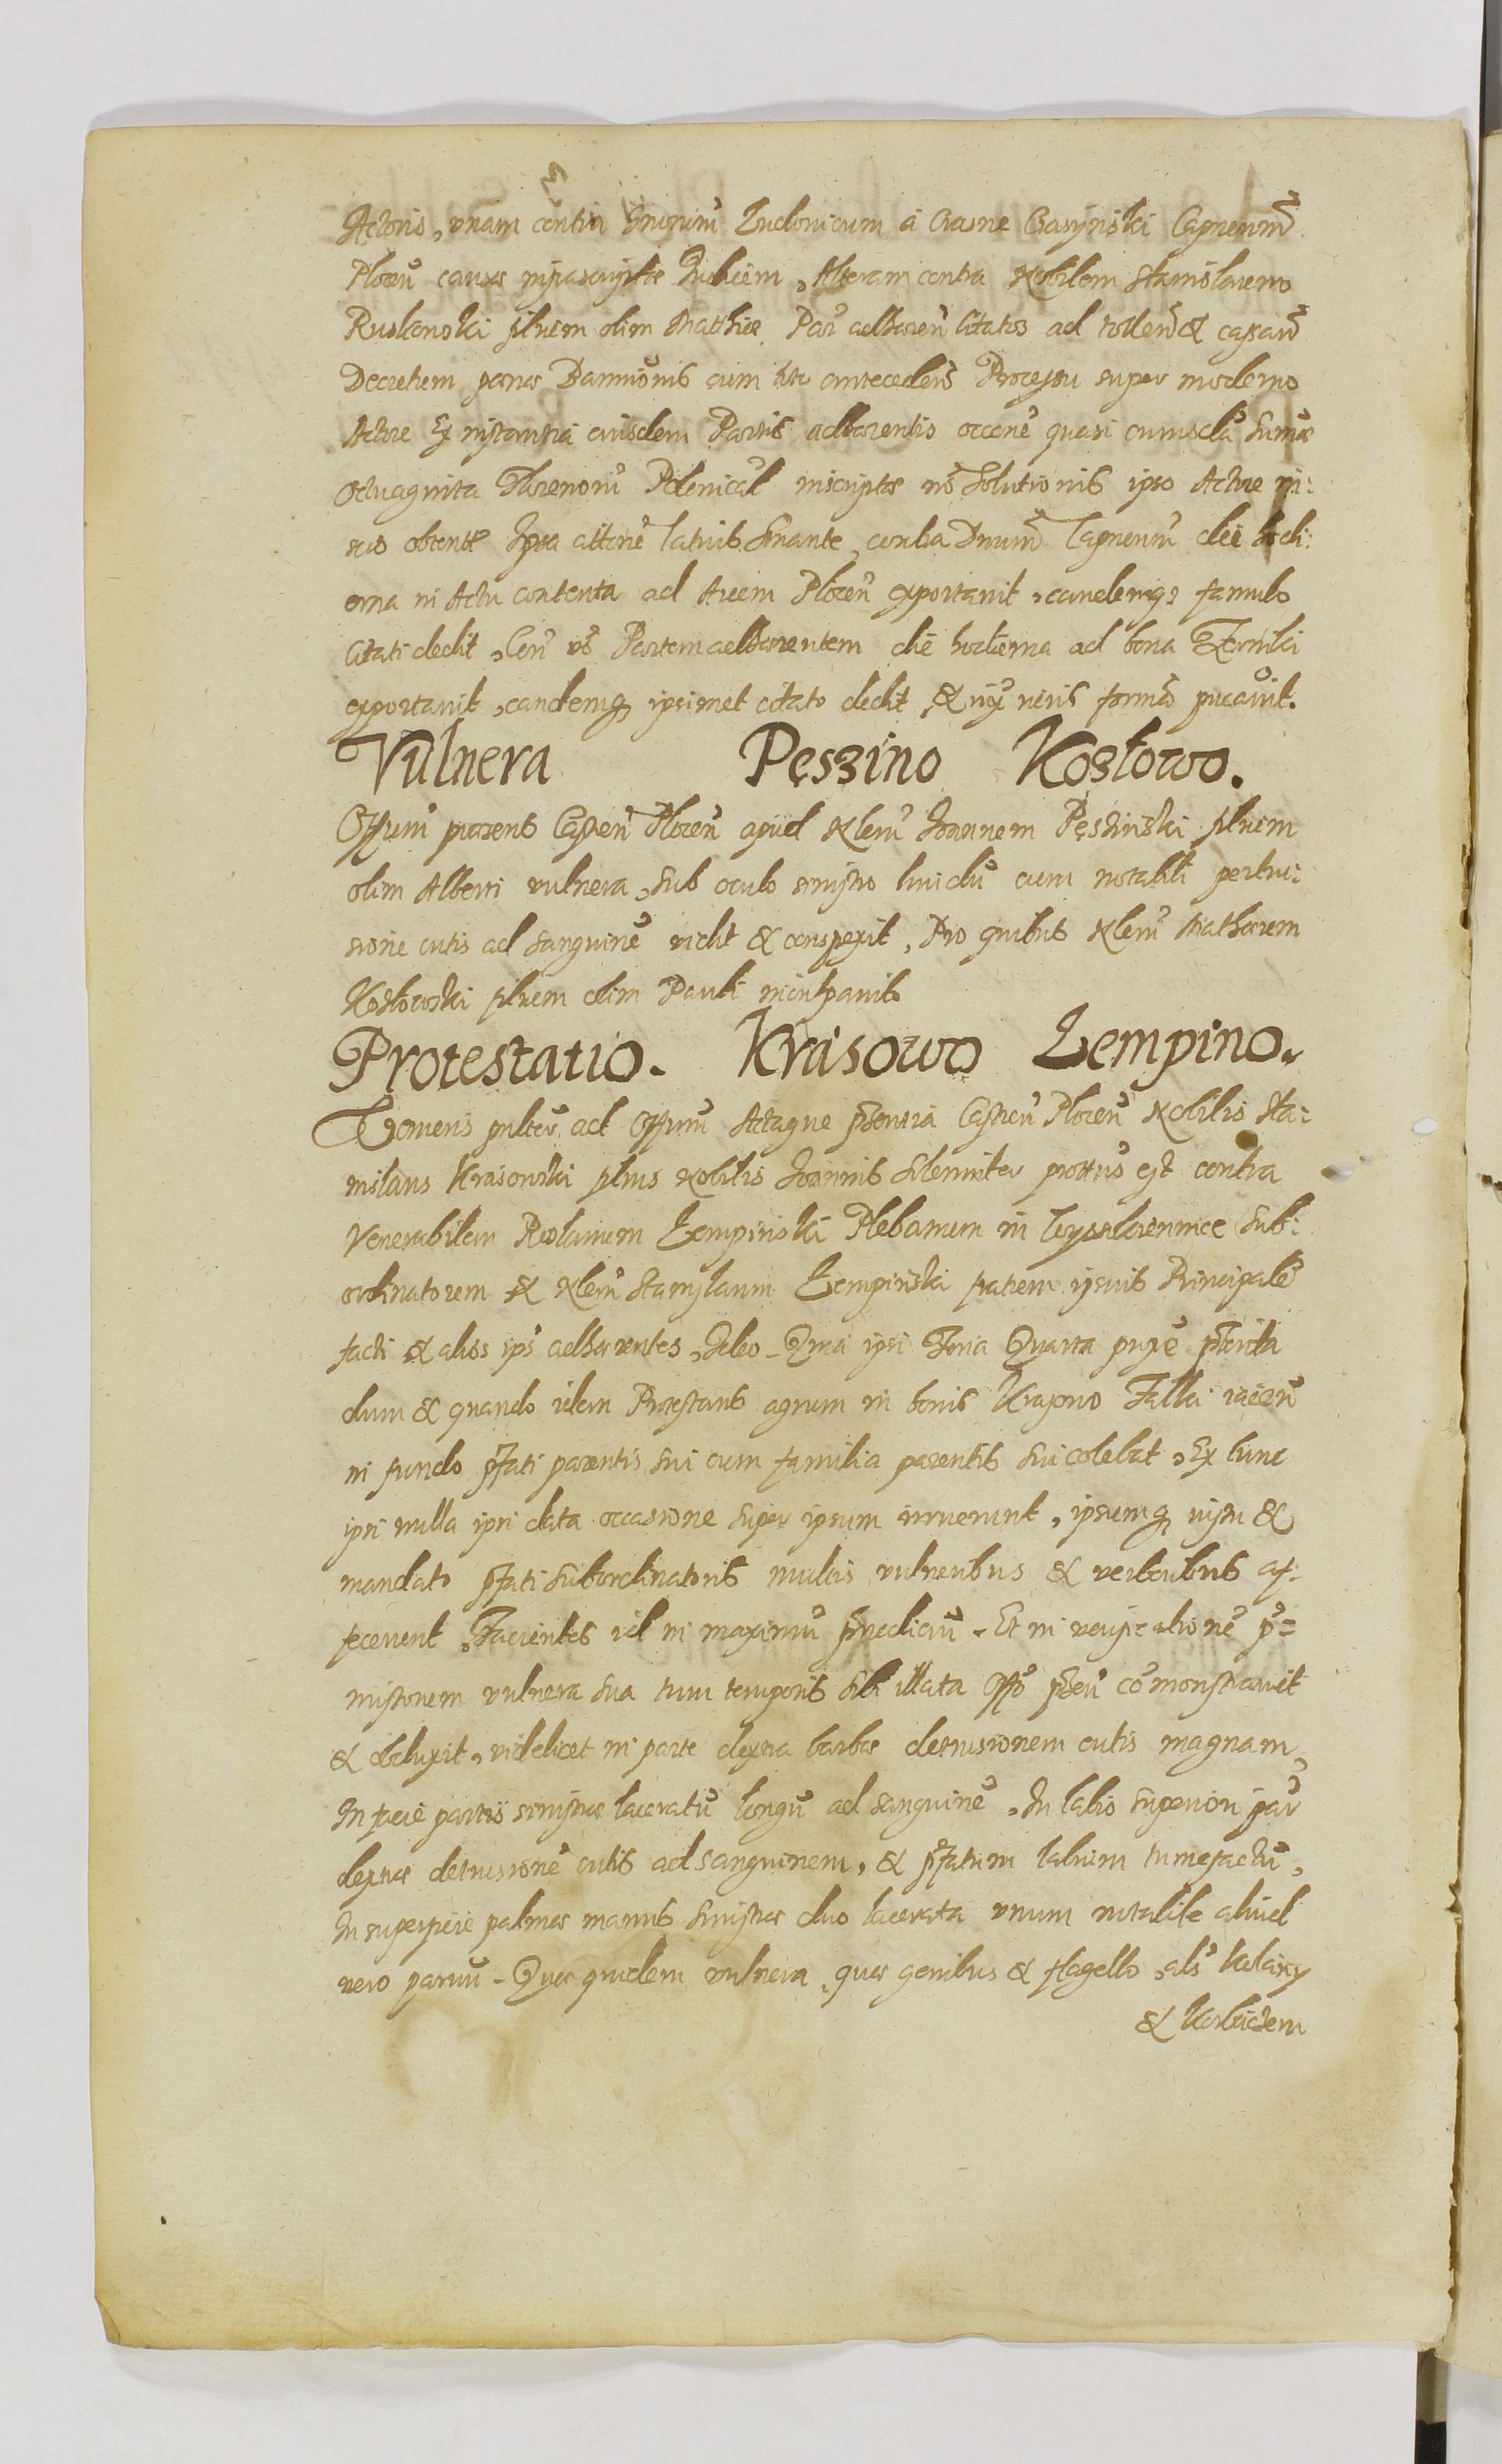 Actoris, vnam contra Gnosum Ludovicum a Crasne Crasinski Capneum
Plocen causae infrascriptae Iudicem, Alteram contra Nobilem Stanislaum
Ruskowski filium olim Matthiae Par adhaeren citatos ad tollend & cassand
Decretum poenae Bannionis cum toto anteceden Processu super moderno
Actore Ex instantia eiusdem Partis adhaerentis occone quasi cuiusda sumae
Octuaginta Florenoru Polonical inscriptae no solutionis ipso Actore in:
scio obtent Ipsa attone latius sonante, contra Dnum Capneum die hodi:
erna in Actu contenta ad Arcem Plocen exportavit, eandemq famulo
Citati dedit, Con vo Partem adhaerentem die hodierna ad bona Zernki
exportavit, eandemq ipsimet citato dedit, & iux iuris forma pucavit.
Vulnera Pęszino Kozłowo.
Offum praesens Castren Plocen apud Nlem Ioannem Pęszinski filium
olim Alberti vulnera, sub oculo sinistro lividu cum notabili pertri:
sione cutis ad sanguine vidit & conspexit, Pro quibus Nlem Mathaeum
Kozłowski filium olim Pauli inculpavit
Protestatio. Krasowo Lempino.
Veniens pulter ad Offum Actaque psentia Castren Plocen Nobilis Sta:
nislaus Krasowski filius Nobilis Ioannis solenniter prottus est contra
Venerabilem Lempinski Plebanum in Sub:
ordinatorem & Nlem Stanislaum Lempinski fratrem ipsius Principale
facti & alios ips adhaerentes, Ideo Quia ipsi Feria Quarta prox pterita
dum & quando idem Protestans agrum in bonis Krasowo
in fundo pfati parentis sui cum familia parentis sui colebat, Ex tunc
ipsi nulla ipsi data occasione super ipsum irruerunt, ipsumq iussu &
mandato pfati subordinatoris multis vulneribus & verberibus af:
fecerunt, Facientes id in maximu piudiciu. Et in verificatione p=
missorum vulnera sua tum temporis sibi illata Offo psen comonstravit
& obduxit, videlicet in parte dextra barbae detrusionem cutis magnam,
In facie partis sinistrae laceratu longu ad sanguine, In labio superiori par
dextrae detrusione cutis ad sanguinem, & pfatum labium tumefactu,
In superficie palmae manus sinistrae duo lacerata vnum notabile aliud
vero parvu. Quae quidem vulnera, quae genibus & flagello, als
& Korbaczem